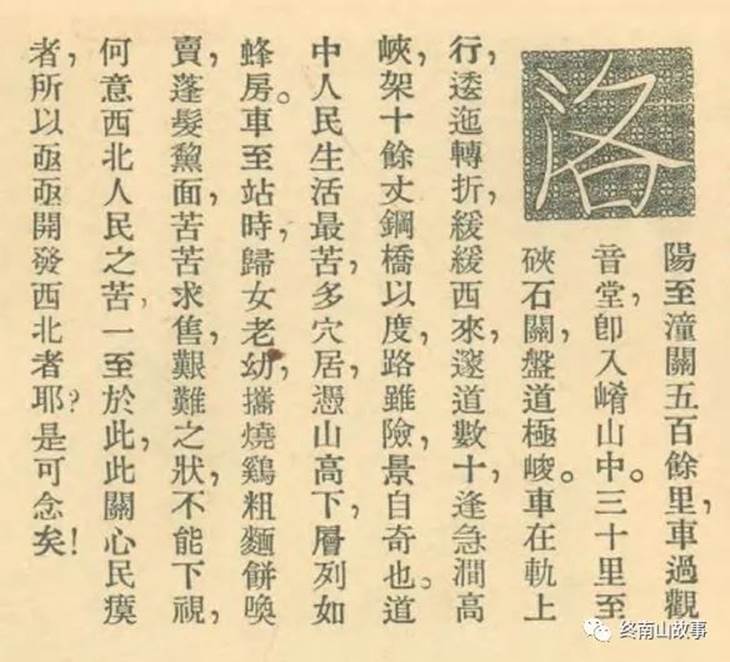 洛
陽至潼關五百餘里，車過觀
音堂，卽入崤山中。三十里至
硤石關，盤道極峻。車在軌上
行，逶迤轉折，緩緩西來，邃道數十，逢急澗高
峽，架十餘丈鋼橋以度，路雖險，景自奇也。道
中人民生活最苦，多穴居，憑山高下，層列如
蜂房。車至站時，歸女老幼，攜燒鷄粗麵餅喚
賣，蓬髮黧面，苦苦求售，艱難之狀，不能下視，
何意西北人民之苦，一至於此，此關心民瘼
者，所以亟亟開發西北者耶？是可念矣！
终南山故事